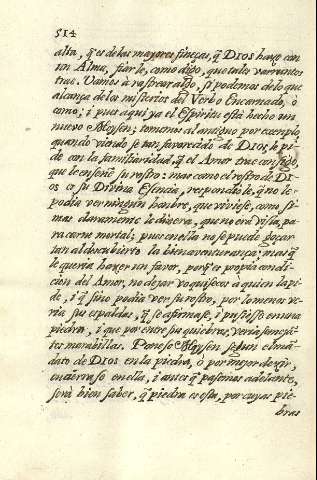 514
alta, q̃ es de las mayores fineças, q̃ DIOS haze con
un Alma, fiarle, como digo, que tales barruntos
trae. Vamos à rastrear algo, si podemos de lo que
alcança de los misterios del Verbo Encarnado, ò
como; i pues aqui ya el Espiritu està hecho un
nuevo Moysen; tomemos al antiguo por exemplo,
quando viendose tan favorecido de DIOS, le pi-
dio con la familiaridad, q̃ el Amor trae consigo,
que le enseñe su rostro: mas como el rostro de DI-
OS es su Divina Esencia, respondiole, q̃ no le
podia ver ningun hombre, que viviese, como si
mas claramente le dixera, que no era vista pa-
ra carne mortal; pues en ella no se puede goçar
tan al descubierto la bienaventurança; mas q̃
le queria hazer un favor, porq̃ es propia condi-
cion del Amor, no dejar voquiseco à quien la pi-
de, i q̃ sino podia ver su rostro, por lo menos ve-
ria su espaldas, q̃ se afirmase, i pusiesse en una
piedra, i que por entre sus quiebras, veria semejã-
tes marabillas. Ponese Moysen segun el mã-
dato de DIOS en la piedra, ò por mejor deçir,
encierrase en ella, i antes q̃ pasemos adelante,
serà bien saber, q̃ piedra es esta, por cuyas quie-
bras